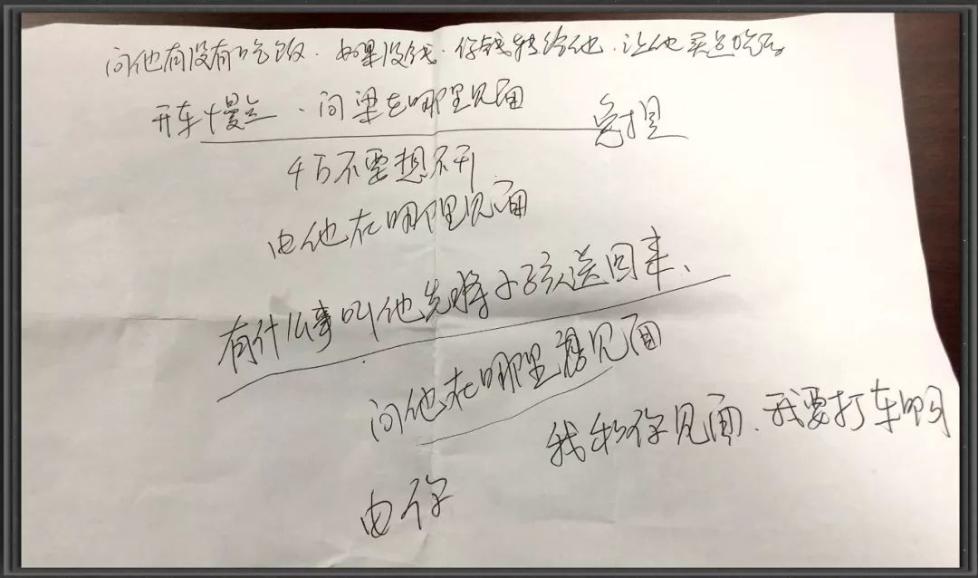 问他有没有吃饭.如果没钱.你钱转给他.让他买点吃
开车慢点.问梁在哪里见面
千万不要想不开
由他在哪里见面
有什么事叫他先将小孩送回来、
问他在哪里见面
我和你见面.我要打车啊
由你